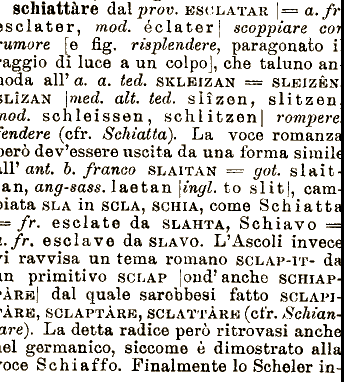 schiattàre dal prov. ESCLATAR [= a. fr.
esclater, mod. éclater] scoppiare con
rumore [e fig. risplendere, paragonato il
raggio di luce a un colpo], che taluno an-
noda all' a. a. ted. SKLEIZAN = SLEIZÊN,
SLÎZAN [med. alt. ted. slîzen, slitzen,
mod. schleissen, schlitzen] rompere,
fendere (cfr. Schiatta). La voce romanza
però dev'essere uscita da una forma simile
all' ant. b. franco SLAITAN = got. slait-
an, ang-sass. laetan [ingl. to slit], cam-
biata SLA in SCLA, SCHIA, come Schiatta
= fr. esclate da SLAHTA, Schiavo =
a. fr. esclave da SLAVO. L'Ascoli invece
vi ravvisa un tema romano SCLAP-IT- da
un primitivo SCLAP [ond'anche SCHIAP-
PÀRE] dal quale sarebbesi fatto SCLAPI-
TÀRE, SCLAPTÀRE, SCLATTÀRE (cfr. Schian-
tare). La detta radice però ritrovasi anche
nel germanico, siccome è dimostrato alla
voce Schiaffo. Finalmente lo Scheler in-